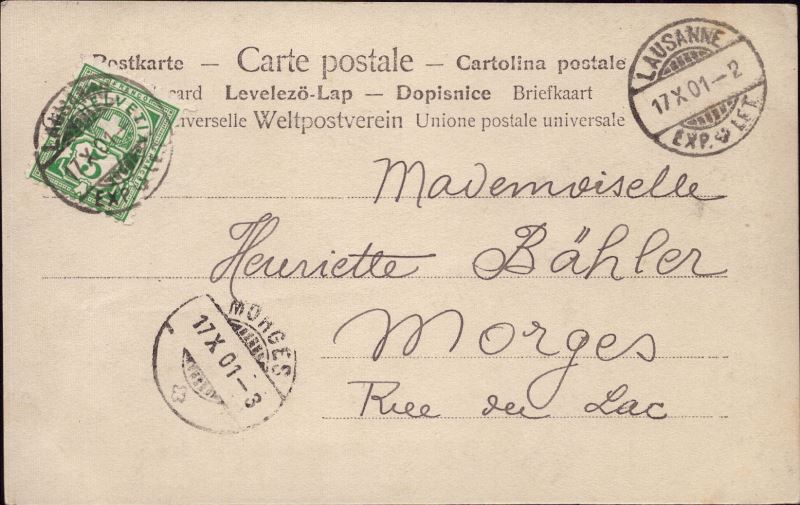 Postkarte — Carte postale — Cartolina postale
card Levelezö-Lap — Dopisnice Briefkaart
universelle Weltpostverein Unione postale universale
HELVETIA
5
LAUSANNE
17 X 01 – 2
EXP. LET.
Mademoiselle
Henriette Bähler
Morges
Rue du Lac
MORGES
17 X 01 – 3